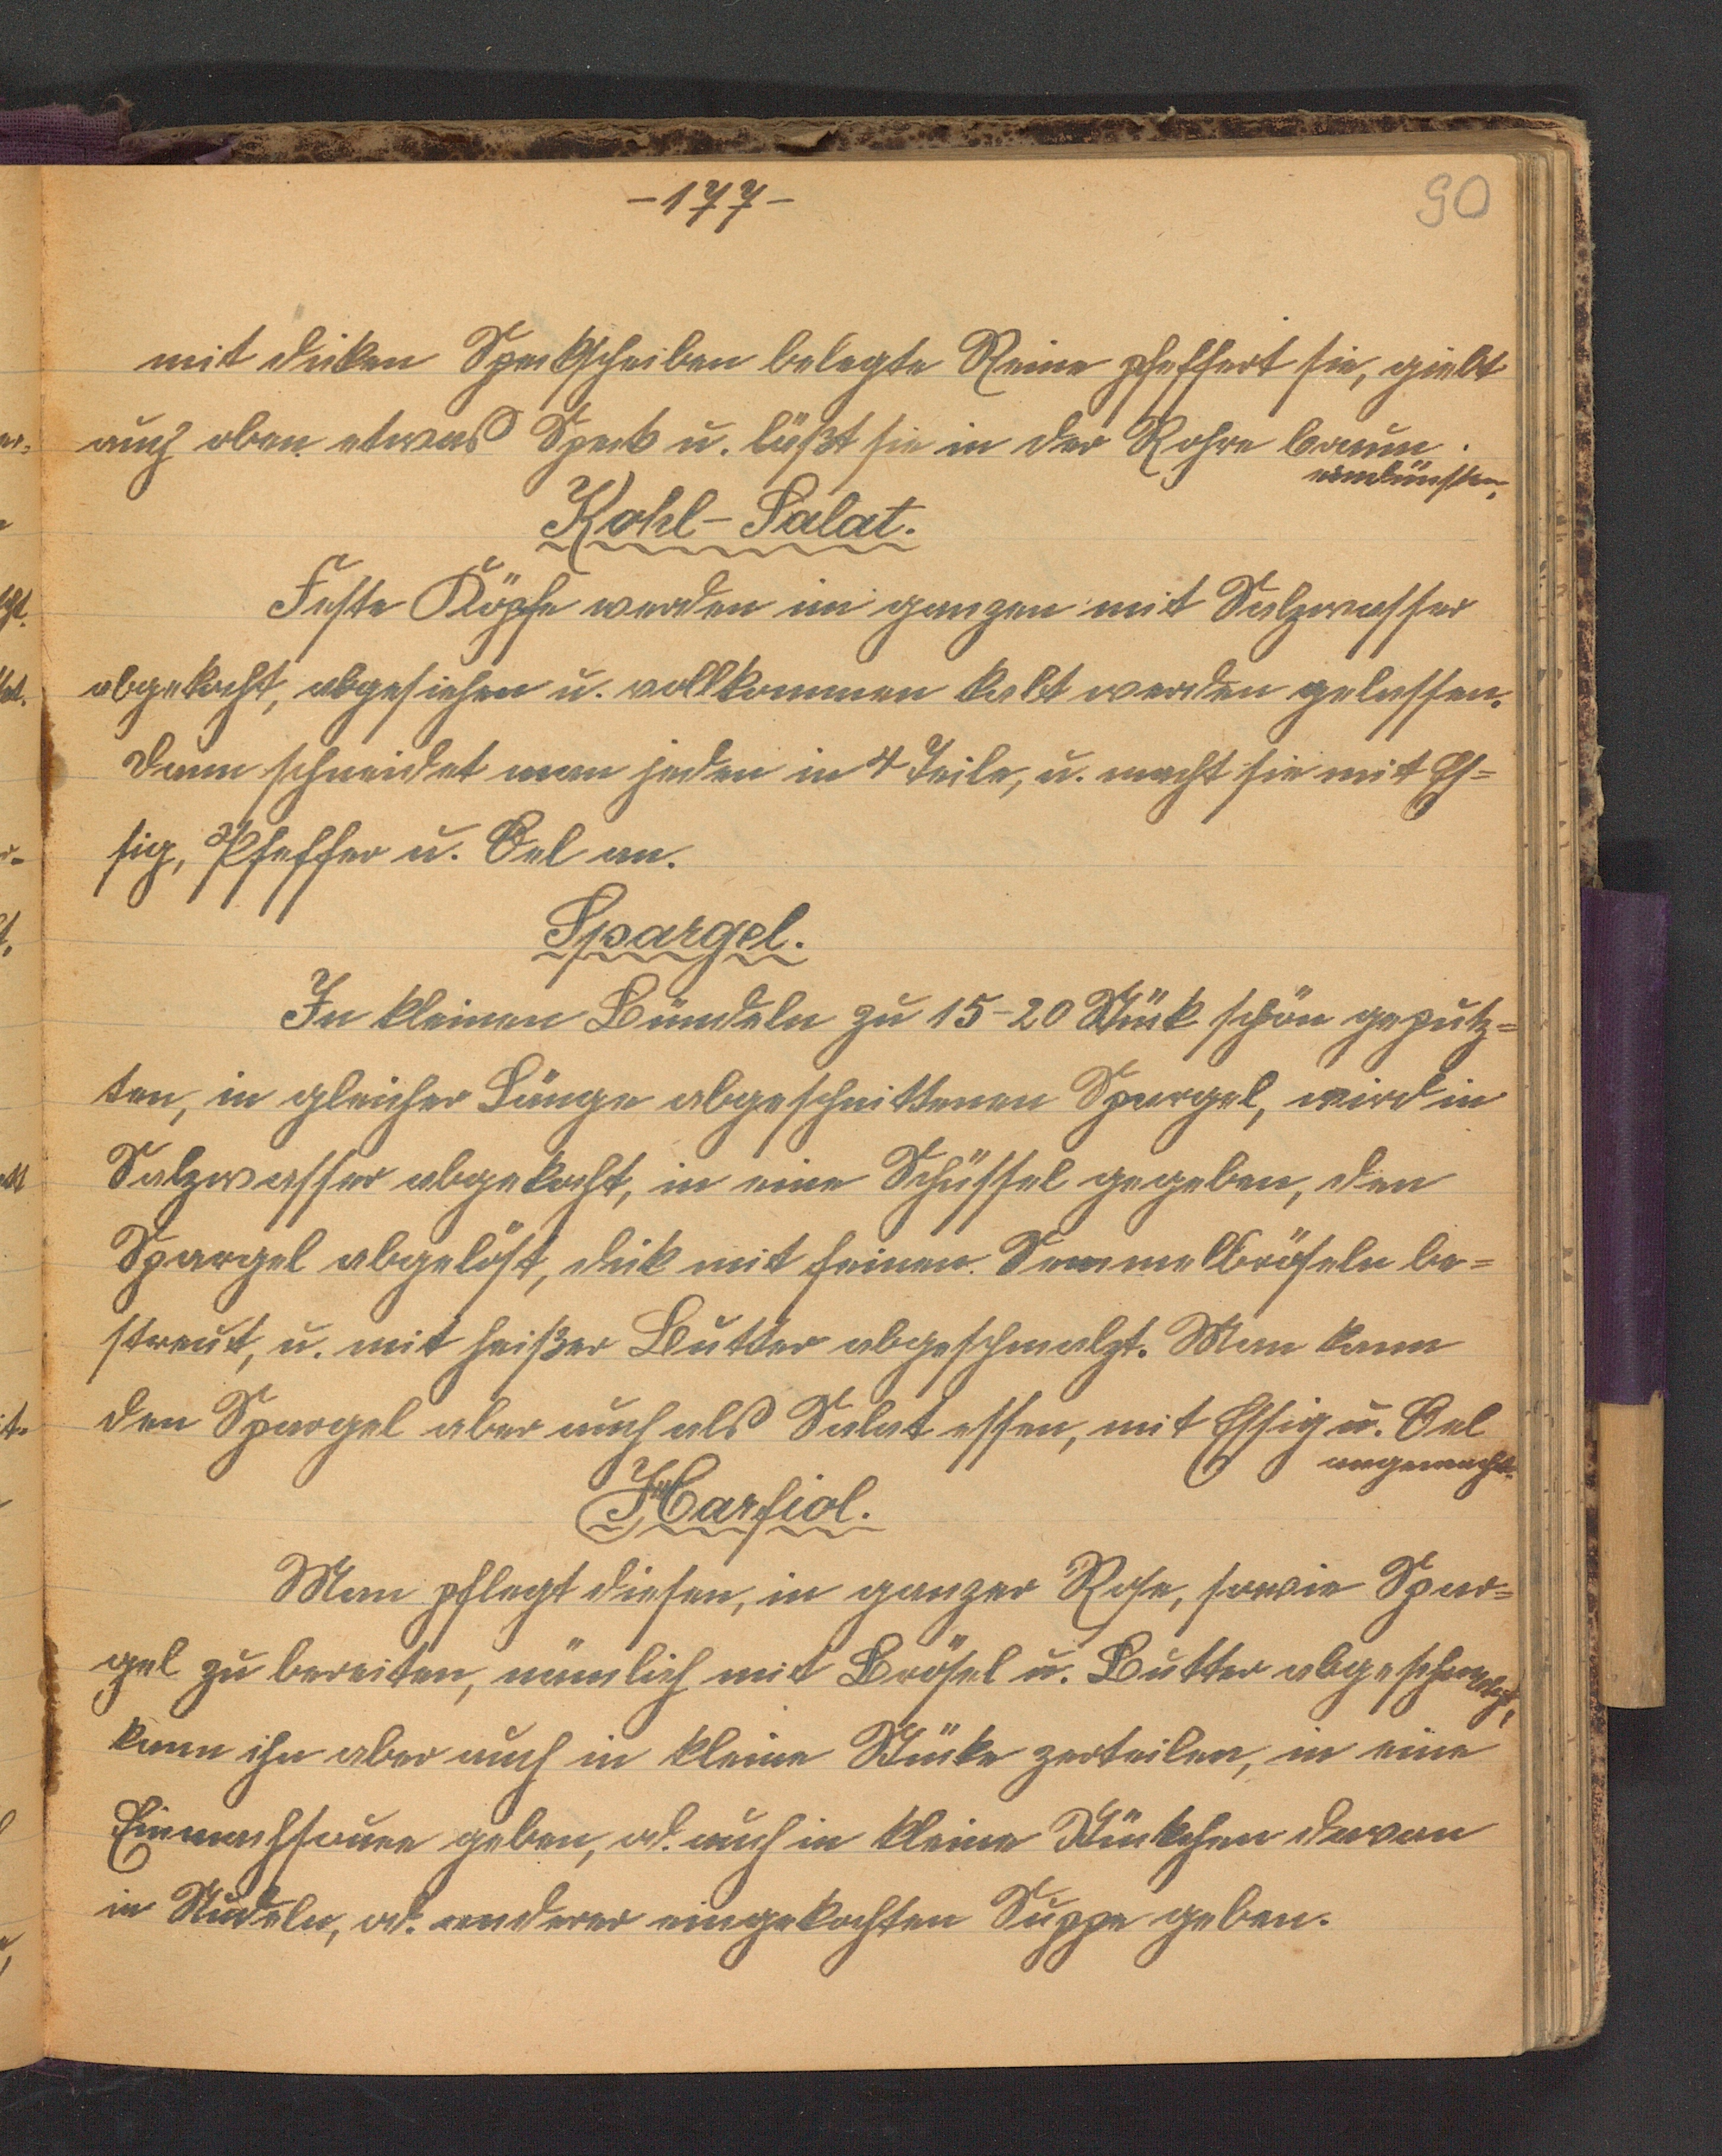 -177-
90
mit dicken Speckscheiben belegte Reine pfeffert sie, giebt
auch oben etwas Speck u. läßt sie in der Rohre braun
eindünsten.
Kohl-Salat.
Feste Köpfe werden im ganzen mit Salzwasser
abgekocht, abgesiehen u. vollkommen kalt werden gelassen.
Dann schneidet man jeden in 4 Teile, u. macht sie mit Es=
sig, Pfeffer u. Oel an.
Spargel.
In kleinen Bündeln zu 15-20 Stück schön geputz=
ten, in gleicher Länge abgeschnittenen Spargel, wird in
Salzwasser abgekocht, in eine Schüssel gegeben, den
Spargel abgelöst, dick mit feinen Semmelbröseln be=
streut, u. mit heißer Butter abgeschmalzt. Man kann
den Spargel aber auch als Salat essen, mit Essig u. Oel
angemacht.
Karfiol.
Man pflegt diesen, in ganzer Rose, sowie Spar=
gel zu bereiten, nämlich mit Brösel u. Butter abgeschmalzt,
kann ihn aber auch in kleine Stücke zerteilen, in eine
Einmachsauce geben, od. auch in kleine Stückchen davon
in Nudeln, od. anderer eingekochten Suppe geben.